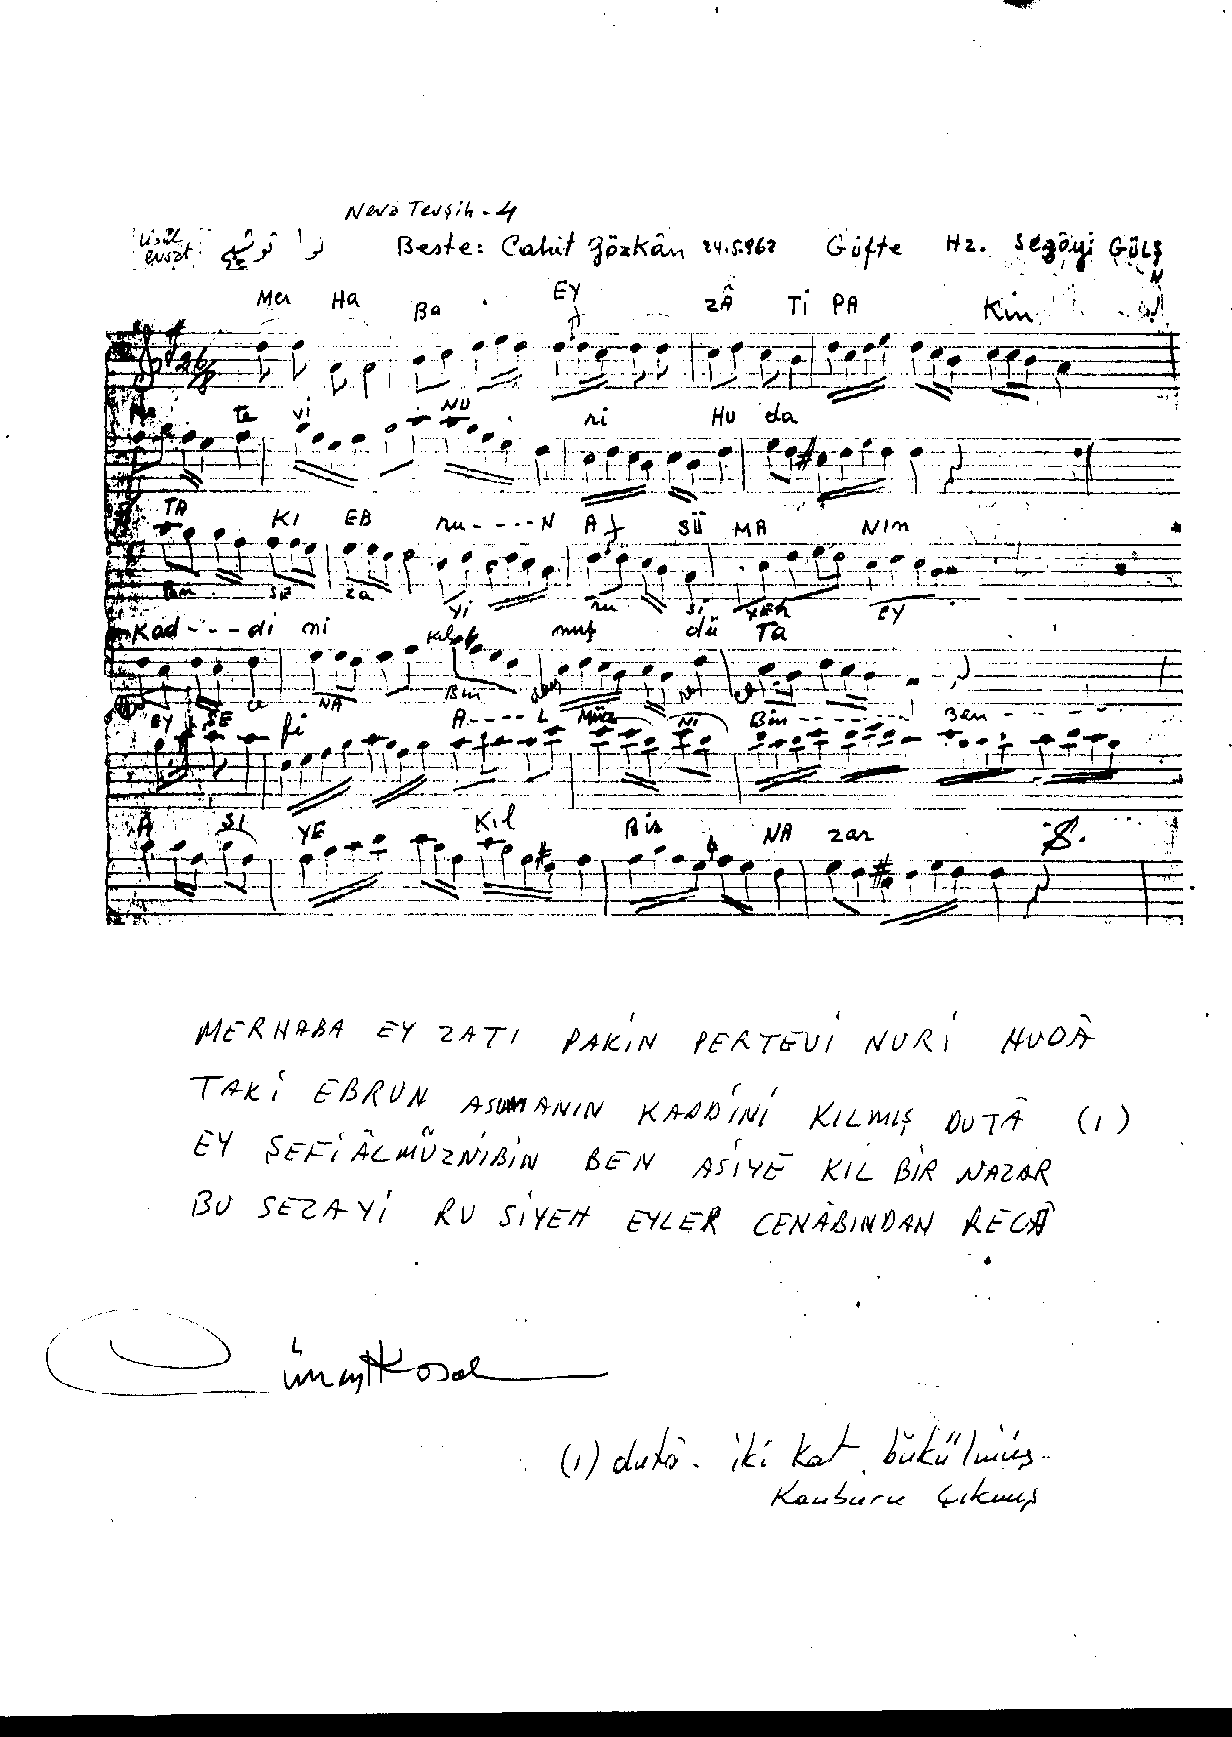 Neva Tevşih - 4
Usûl evsat نوا توشیح Beste: Cahit Gözkân 24.5.962 Güfte Hz. Sezâyi GÜLŞ
Mer Ha Ba EY ZÂ Ti PA Kin
te vi NU ri HU da
TA Kİ EB ru - - - - N A SÜ MA NIM
Bu SE za Yİ ru Sİ YEH EY
Kad - - - di ni Kıl mış dü TA
NA Bin dan re ca
EY ŞE fi A - - - - L Müz Nİ Bin - - - - - - - Ben - - - -
A Sİ YE Kıl Bir NA zar S.
MERHABA EY ZATI PAKİN PERTEVİ NURİ HUDÂ
TAKİ EBRUN ASUMANIN KADDİNİ KILMIŞ DUTÂ (1)
EY ŞEFİÂLMÜZNİBİN BEN ASİYE KIL BİR NAZAR
BU SEZAYİ RU SİYEH EYLER CENÂBINDAN RECÂ
(1) dutâ - iki kat bükülmüş
Kanburu çıkmış